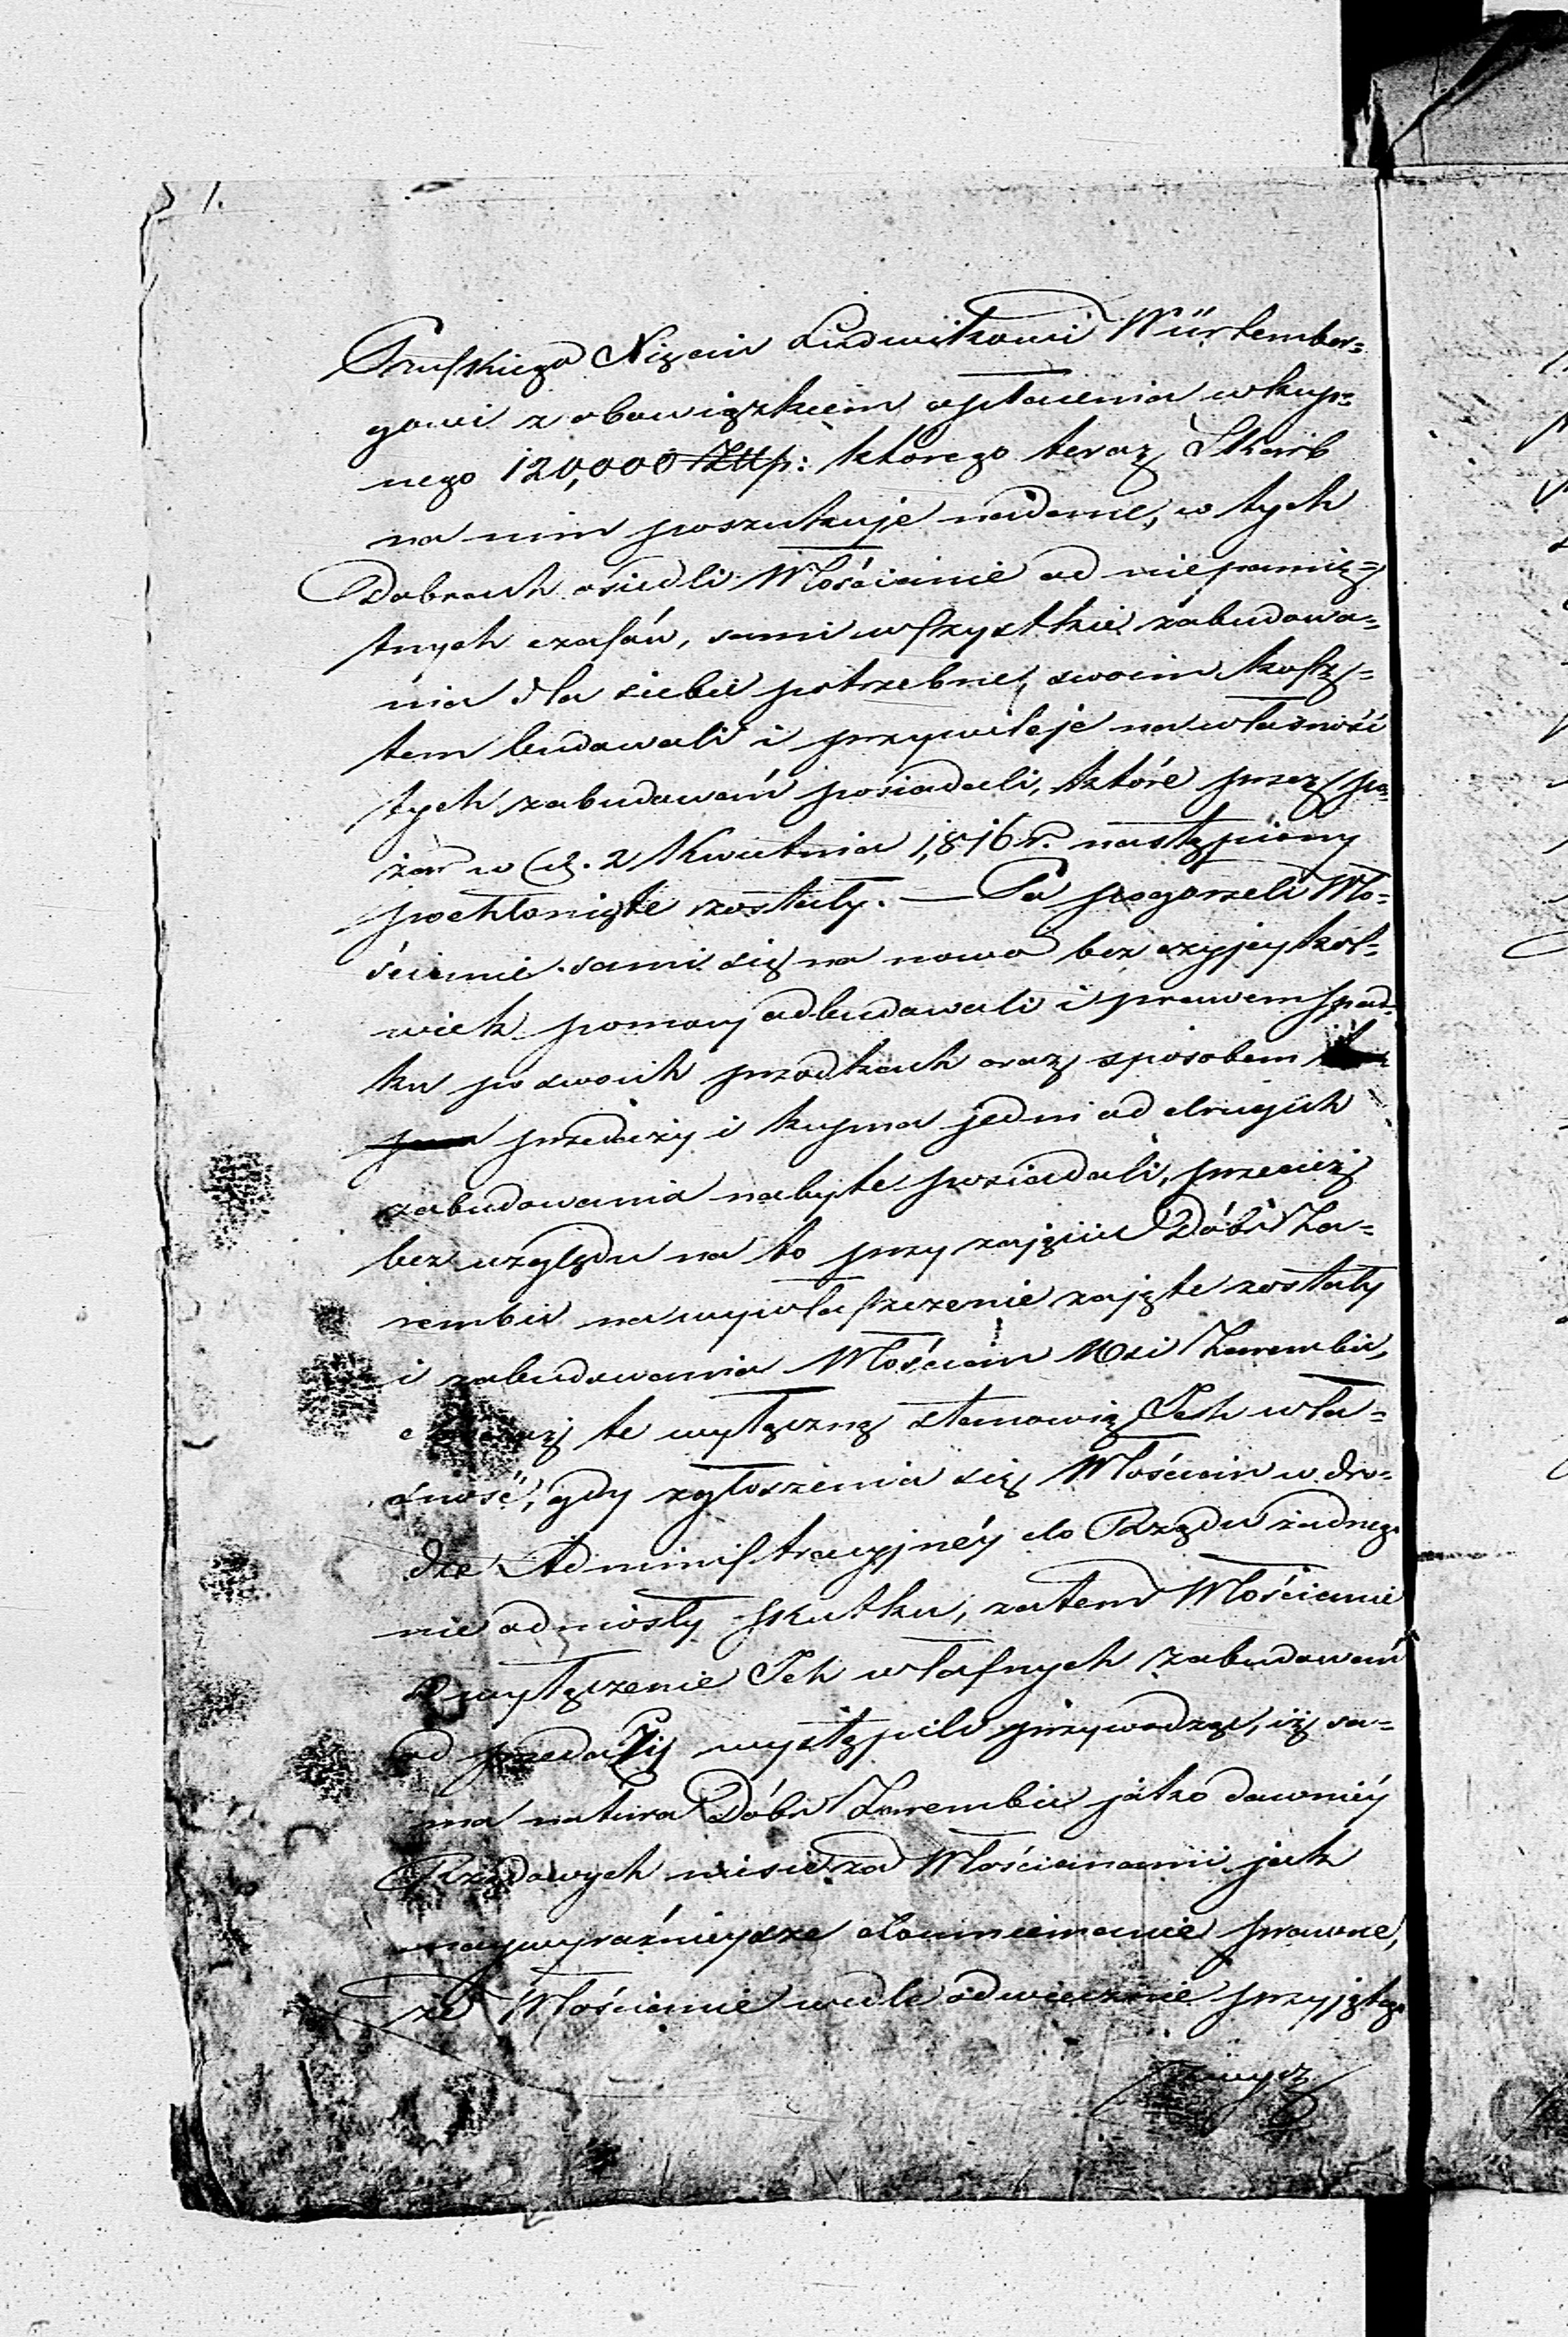 1.
Pruskiego Xięciu Ludwikowi Würtember=
gowi z obowiązkiem opłacenia wkup=
nego 120,000 Złlp: którego teraz Skarb
na nim poszukuje nadane, w tych
Dobrach osiedli Włościanie od niepamię=
tnych czasów, sami wszystkie zabudowa=
nia dla siebie potrzebne, swoim kosz=
tem budowali i przywileje na własność
tych zabudowań posiadali, które przez po=
żar w d. 2 Kwietnia 1816 r. nastąpiony
pochłonięte zostały. — Po pogorzeli Wło=
ścianie sami się na nowo bez czyjejkol=
wiek pomocy odbudowali i prawem spad=
ku po swoich przodkach oraz sposobem
przedaży i kupna jedni od drugich
zabudowania nabyte posiadali, przecież
bez względu na to przy zajęciu Dóbr Za=
rembie na wywłaszczenie zajęte zostały
i zabudowania Włościan Wsi Zarembie,
te wyłączną stanowią Ich wła=
sność, gdy zgłoszenia się Włościan w dro=
dze Administracyjnéy do Rządu żadnego
nie odniosły skutku, zatem Włościanie
o wyłączenie Ich własnych zabudowań
od przedaży wystąpili przywodząc, iż sa=
ma natura Dóbr Zarembie jako dawniéy
Rządowych niesie za Włościanami jak
naywyraźnieysze domniemanie prawne,
że Włościanie wedle odwiecznie przyjętego
zwycz